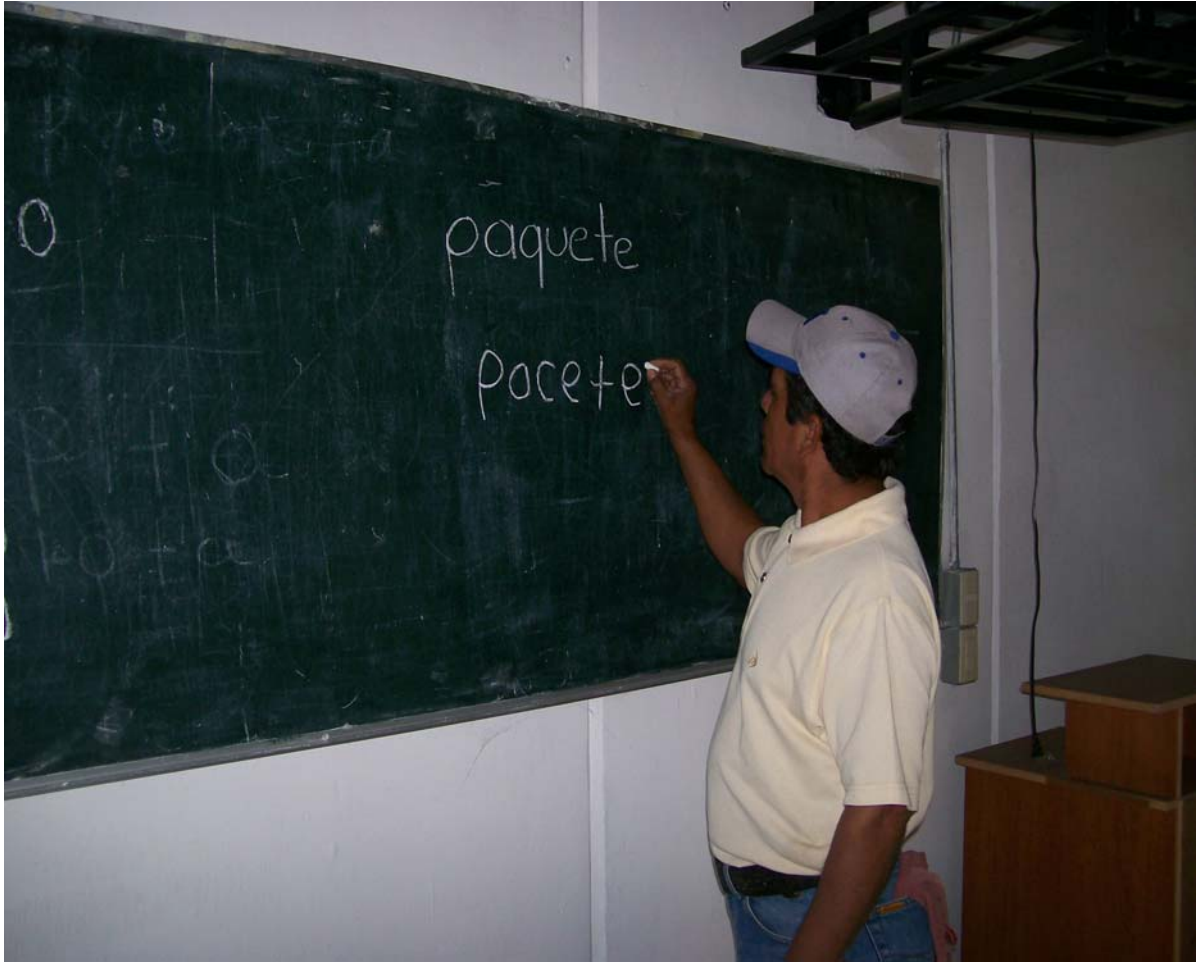 o
paquete
pocete